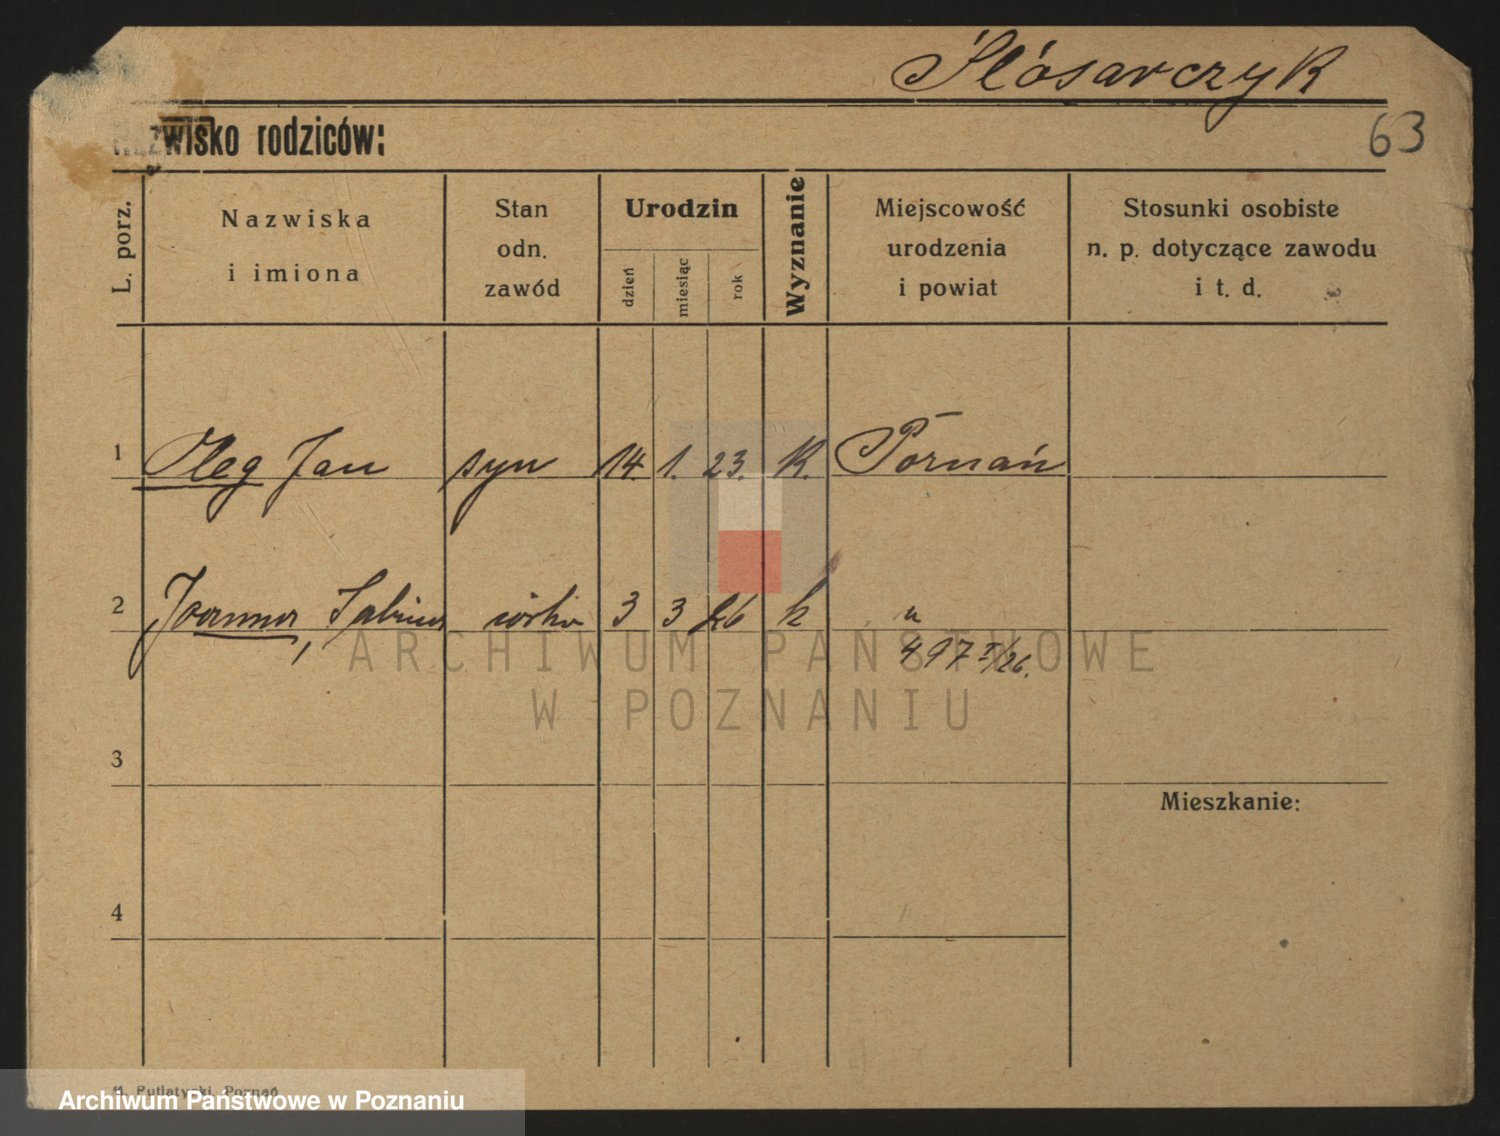 Ślósarczyk
63
Nazwisko rodziców:
L. porz.
Nazwiska
i imiona
Stan
odn.
zawód
Urodzin
dzień
miesiąc
rok
Wyznanie
Miejscowość
urodzenia
i powiat
Stosunki osobiste
n. p. dotyczące zawodu
i t. d.
1 Oleg Jan syn 14. 1. 23. K. Poznań
2 Joanna, Sabina córka 3 3 26 k "
497 I/26.
3
Mieszkanie:
4
ARCHIWUM PAŃSTWOWE
W POZNANIU
M. Putiatycki, Poznań
Archiwum Państwowe w Poznaniu